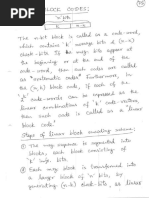 BLOCK CODES:
'n' bits
k
n-k
The n-bit block is called as a code-word,
which contains 'k' message bits & (n-k)
check-bits. If the message bits appear at
the beginning or at the end of the
code-word, then such codes are called
as "systematic codes". Furthermore, in
the (n,k) block codes, if each of the
code-words can be expressed as the
linear combinations of 'k' code-vectors,
then such a code is called as linear
block codes.
Steps of linear block encoding scheme:
① The msg sequence is segmented into
blocks, each block consisting of
'k' successive msg bits.
② Each msg block is transformed into
a larger block of 'n' bits, by
generating (n-k) check-bits, as linear